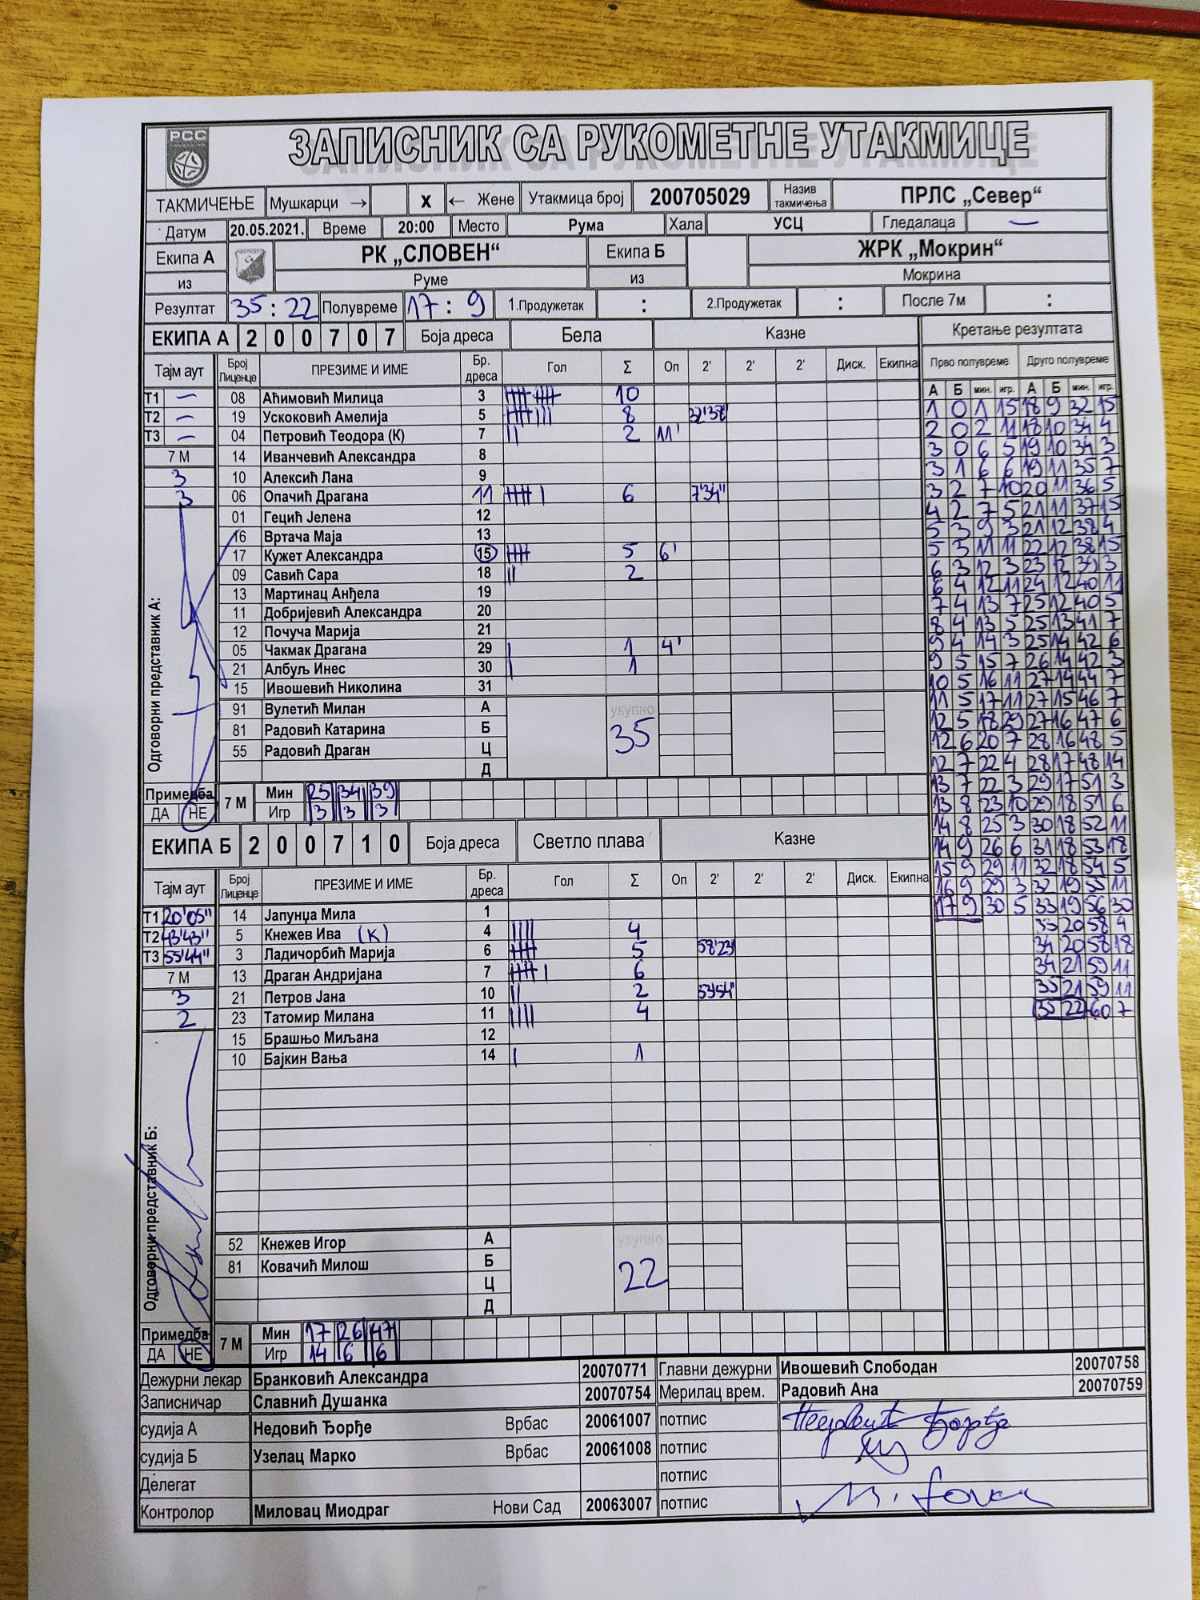 РСС
ЗАПИСНИК СА РУКОМЕТНЕ УТАКМИЦЕ
ТАКМИЧЕЊЕ Мушкарци → X ← Жене Утакмица број 200705029 Назив такмичења ПРЛС „Север“
Датум 20.05.2021. Време 20:00 Место Рума Хала УСЦ Гледалаца —
Екипа А РК „СЛОВЕН“ Екипа Б ЖРК „Мокрин“
из Руме из Мокрина
Резултат 35 : 22 Полувреме 17 : 9 1.Продужетак : 2.Продужетак : После 7м :
ЕКИПА А 2 0 0 7 0 7 Боја дреса Бела Казне Кретање резултата
Тајм аут Број Лиценце ПРЕЗИМЕ И ИМЕ Бр. дреса Гол Σ Оп 2' 2' 2' Диск. Екипна Прво полувреме Друго полувреме
А Б мин. игр. А Б мин. игр.
Т1 — 08 Аћимовић Милица 3 10
Т2 — 19 Ускоковић Амелија 5 8 32'38
Т3 — 04 Петровић Теодора (К) 7 2 11'
7 М 14 Иванчевић Александра 8
3 10 Алексић Лана 9
3 06 Опачић Драгана 11 6 7'34"
01 Гецић Јелена 12
16 Вртача Маја 13
17 Кужет Александра 15 5 6'
09 Савић Сара 18 2
13 Мартинац Анђела 19
11 Добријевић Александра 20
12 Почуча Марија 21
05 Чакмак Драгана 29 1 4'
21 Албуљ Инес 30 1
15 Ивошевић Николина 31
91 Вулетић Милан А укупно
81 Радовић Катарина Б 35
55 Радовић Драган Ц
Д
Одговорни представник А:
Примедба 7 М Мин 25 34 39
ДА НЕ Игр 3 3 3
1 0 1 15 18 9 32 15
2 0 2 11 18 10 34 4
3 0 6 5 19 10 34 3
3 1 6 6 19 11 35 7
3 2 7 10 20 11 36 5
4 2 7 5 21 11 37 15
5 3 9 3 21 12 38 4
5 3 11 11 22 12 38 15
6 3 12 3 23 12 39 3
6 4 12 11 24 12 40 11
7 4 13 7 25 12 40 5
8 4 13 5 25 13 41 7
9 4 14 3 25 14 42 6
9 5 15 7 26 14 42 3
10 5 16 11 27 14 44 7
11 5 17 11 27 15 46 7
12 5 18 29 27 16 47 6
12 6 20 7 28 16 48 5
12 7 22 4 28 17 48 14
13 7 22 3 29 17 51 3
13 8 23 10 29 18 51 6
14 8 25 3 30 18 52 11
14 9 26 6 31 18 53 18
15 9 29 11 32 18 54 5
16 9 29 3 32 19 55 11
17 9 30 5 33 19 56 30
33 20 58 4
34 20 58 18
34 21 59 11
35 21 59 11
35 22 60 7
ЕКИПА Б 2 0 0 7 1 0 Боја дреса Светло плава Казне
Тајм аут Број Лиценце ПРЕЗИМЕ И ИМЕ Бр. дреса Гол Σ Оп 2' 2' 2' Диск. Екипна
Т1 20'05" 14 Јапунџа Мила 1
Т2 43'43" 5 Кнежев Ива (К) 4 4
Т3 55'44" 3 Ладичорбић Марија 6 5 58'23
7 М 13 Драган Андријана 7 6
3 21 Петров Јана 10 2 53'54"
2 23 Татомир Милана 11 4
15 Брашњо Миљана 12
10 Бајкин Вања 14 1
Одговорни представник Б:
52 Кнежев Игор А укупно
81 Ковачић Милош Б 22
Ц
Д
Примедба 7 М Мин 17 26 47
ДА НЕ Игр 14 6 6
Дежурни лекар Бранковић Александра 20070771 Главни дежурни Ивошевић Слободан 20070758
Записничар Славнић Душанка 20070754 Мерилац врем. Радовић Ана 20070759
судија А Недовић Ђорђе Врбас 20061007 потпис Недовић Ђорђе
судија Б Узелац Марко Врбас 20061008 потпис
Делегат потпис
Контролор Миловац Миодраг Нови Сад 20063007 потпис